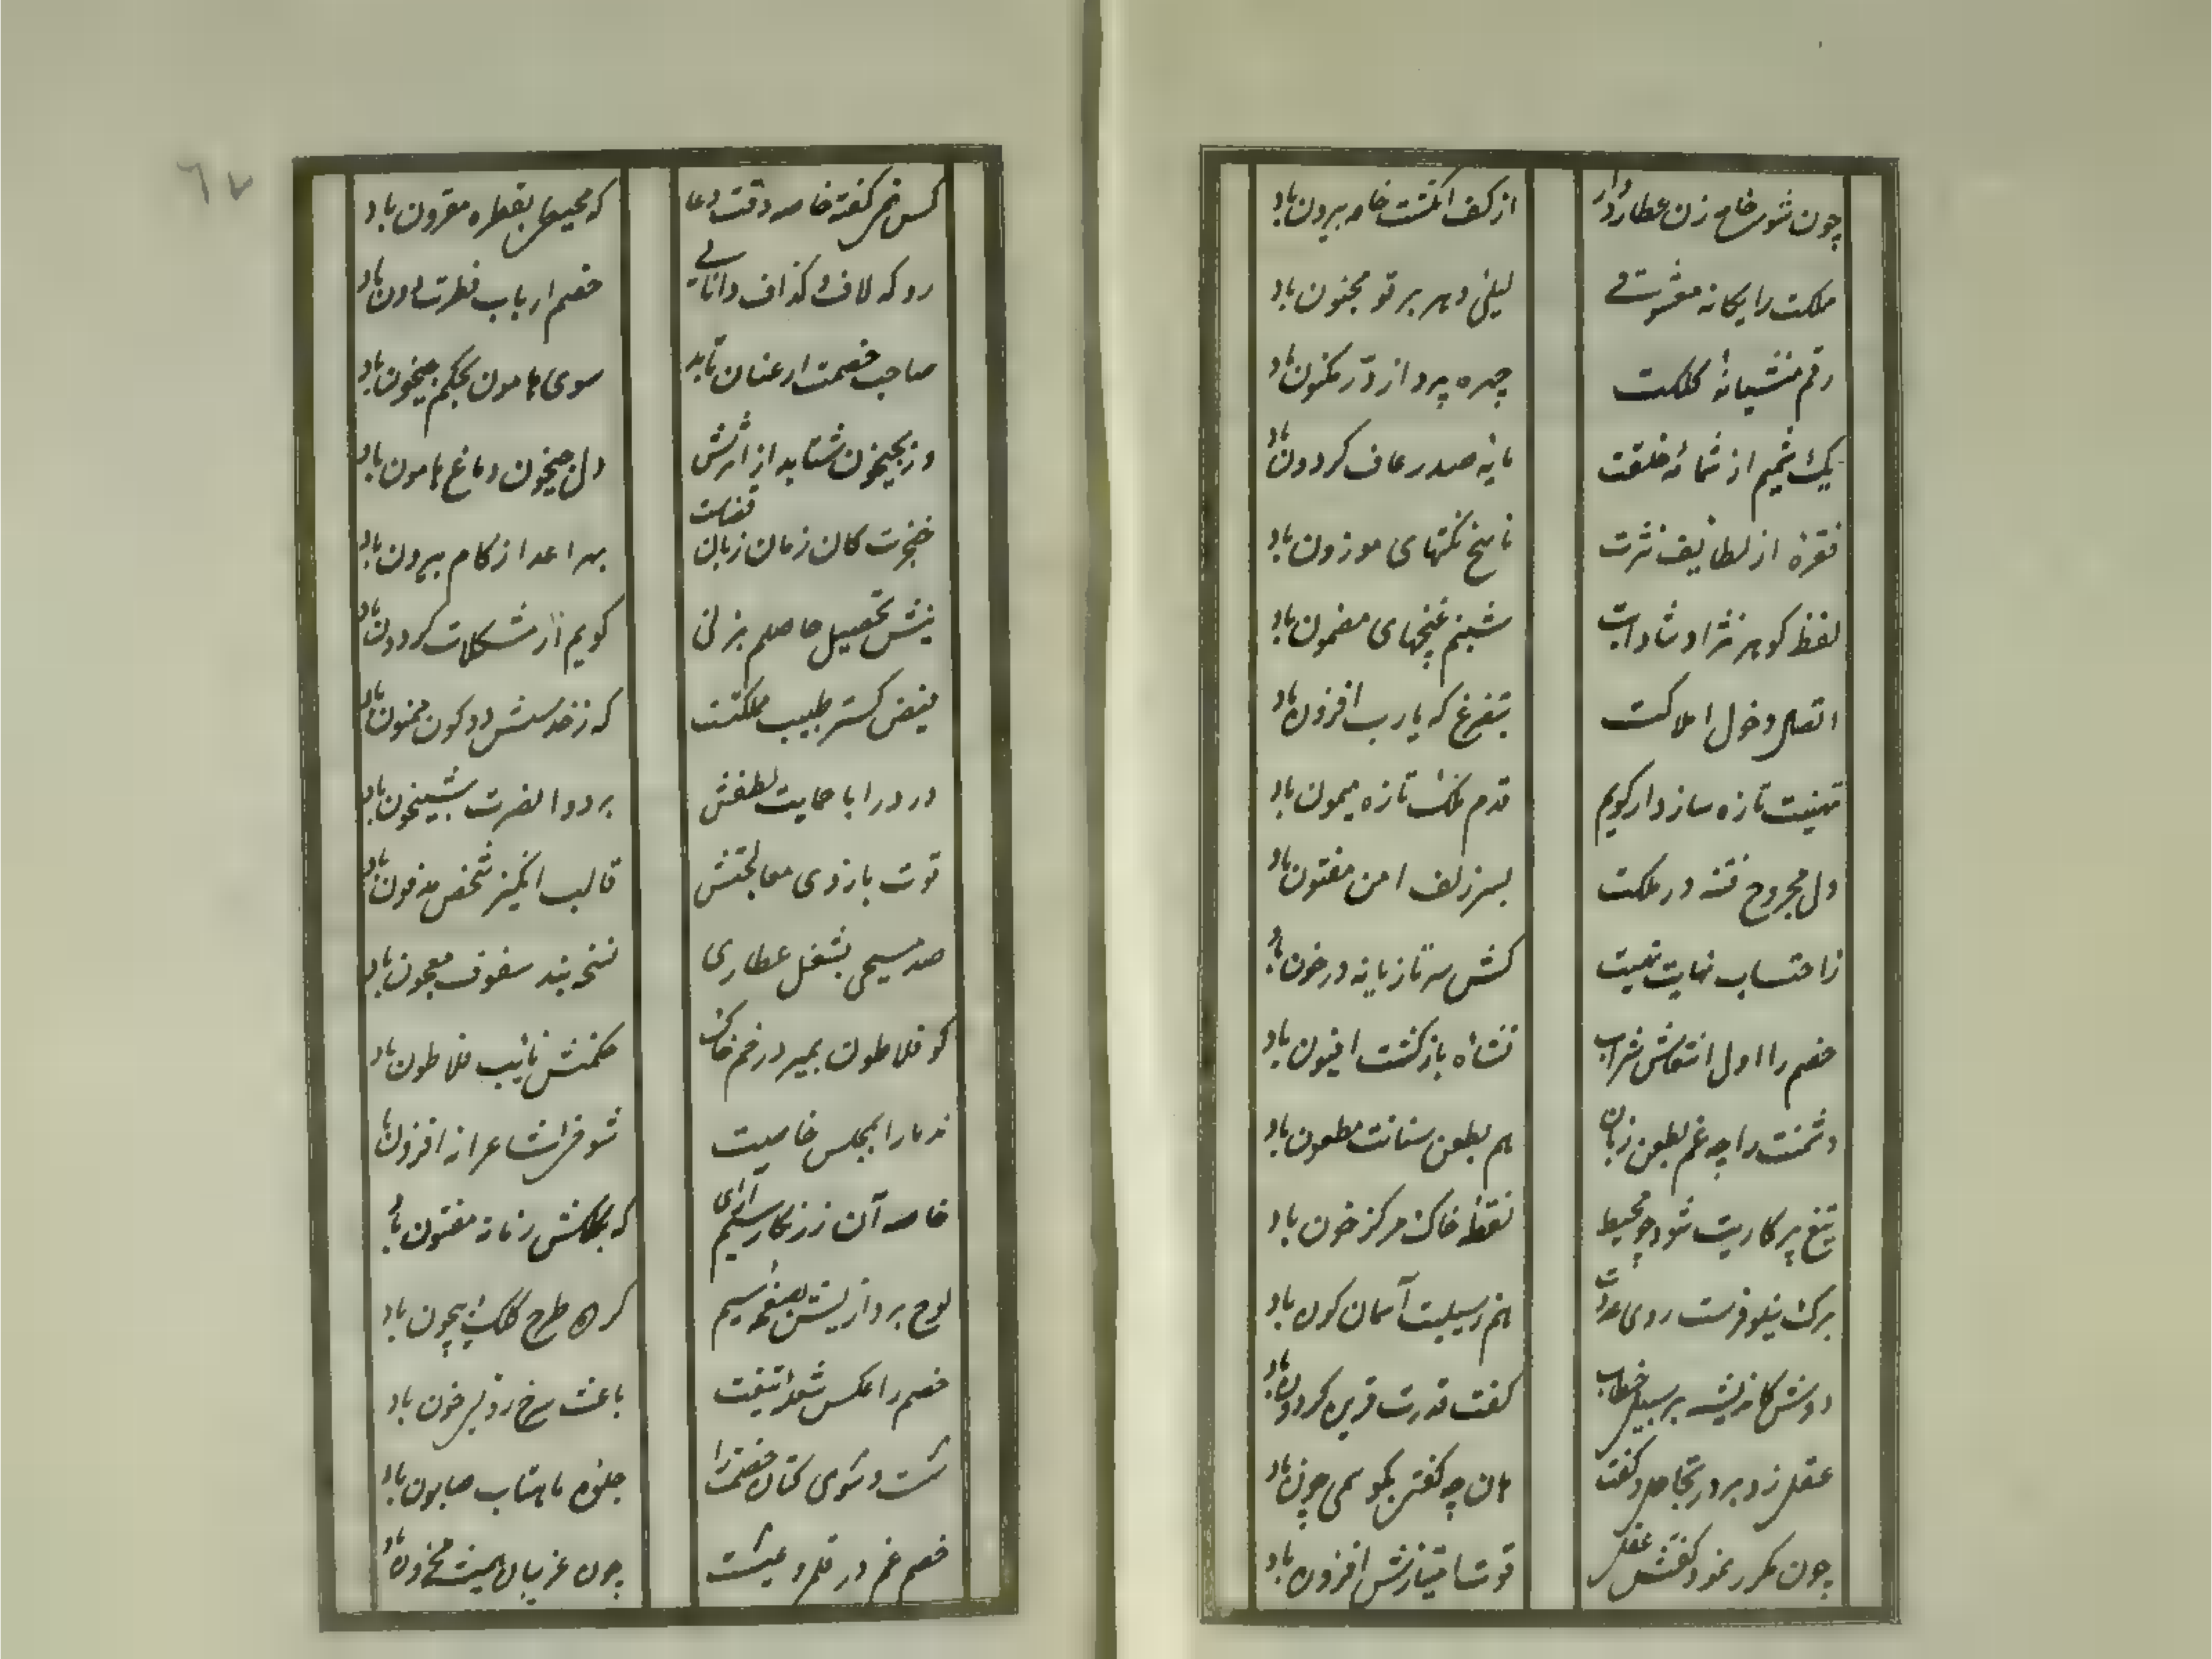 چون شوی خامه زن عطارد وار
از کف انگشت خامه بیرون باد
ملکت را یکانه معشوقی
لیلی دهر بر تو مجنون باد
رقم منشیانهٔ کلکت
چهره پرداز درّ مکنون باد
یک شمیم از شمامهٔ خلقت
مایه صد رعاف کردون باد
فقرهٔ از لطایف نثرت
ناسخ نکتهای موزون باد
لفظ کوهر نژاد شادابت
شبنم غنچهای مضمون باد
اتصل دخول املاکت
بتفرع که یارب افزون باد
تهنیت تازه ساز دار کویم
قدم ملک تازه میمون باد
دل مجروح فتنه در ملکت
بسر زلف امن مفتون باد
ز احتساب نهایت نهیت
کش سر تازیانه در خون باد
خصم را اول انتعاش شراب
نشاه بازکشت افیون باد
دشمنت را چه غم بطعن زبان
هم بطعن سنانت مطعون باد
تیغ پرکاریت شود چو محیط
نقطه خاک مرکز خون باد
برک نیلوفرست روی عدوت
هم ز سیلیت آسمان کون باد
دوش کاندیشه بر سبیل خطاب
کفت قدرت قرین کردون باد
عقل زد بر در تجاهل و کفت
هان چه کفتی بکو سمی چون باد
چون مکرر نمود کفتش عقل
قوت امتیازش افزون باد
کس خر کفته خاصه وقت دعا
که محیطی بقطره مقرون باد
رو که لاف و کذاف دانایی
خصم ارباب فطرت دون باد
صاحب خصمت ار عنان تابد
سوی هامون بحکم جیحون باد
ور بجیحون شتابد از اثرش
دل جیحون دماغ هامون باد
خنجرت کان زمان زبان قضاست
بهر اعدا ز کام بیرون باد
نیش تحصیل حاصلم بزنی
کویم ار مشکلات کردون باد
فیض کستر طبیب مملکتت
که ز خدمتش دو کون ممنون باد
درد را با حمایت لطفش
بر دوا نصرت شبیخون باد
قوت بازوی معالجتش
قالب انکیز شخص مدفون باد
صد مسیحی بشغل عطاری
نسخه بند سفوف و معجون باد
کو فلاطون بمیر در خم خاک
حکمتش نایب فلاطون باد
ندما را بمجلس خاصیت
شوق انشاعرانه افزون باد
خاصه آن زرنکار سیم آرای
که بکلکش زمانه مفتون باد
لوح پردازیش بصفحه سیم
کرهٔ طرح کلک بیچون باد
خصم را عکس شعله تیغت
باعث سرخ رویی خون باد
شست و شوی کتان خصمت را
جلوه ماهتاب صابون باد
خصم غم در قلمرو عیشت
چون غریبان همیشه محزون باد
۶۷